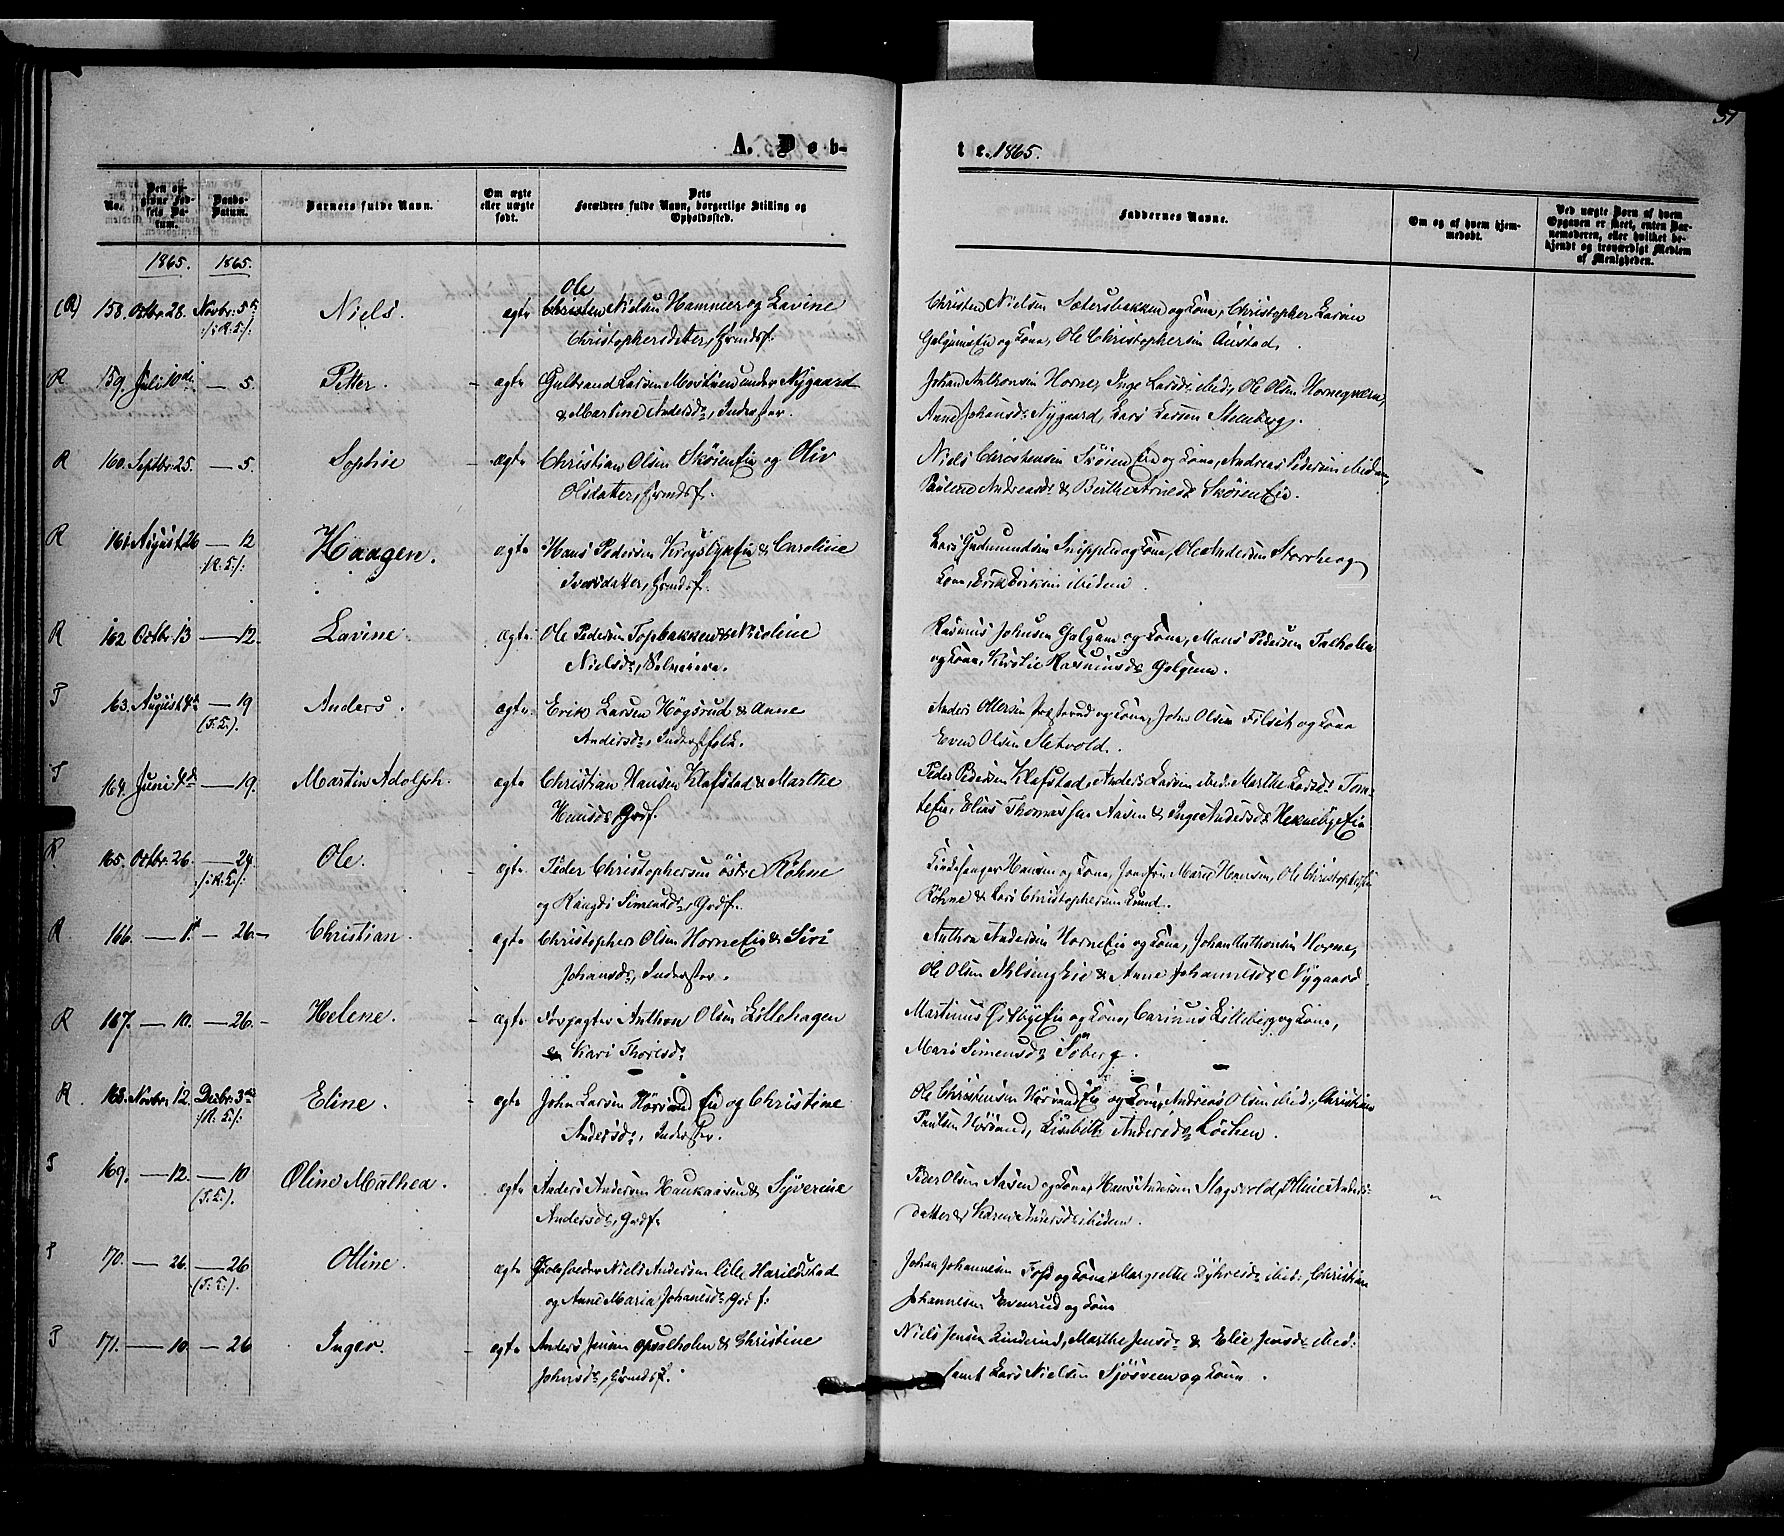 A. Døb-
te. 1865.
37
No.
Den op-
givne Fød-
sels Da-
tum.
Daabs-
Datum.
Barnets fulde Navn.
Om ægte
eller uægte
født.
Dets
Forældres fulde Navn, borgerlige Stilling og
Opholdssted.
Faddernes Navne.
Om og af hvem hjem-
medøbt.
Ved uægte Børn af hvem
Opgaven er skeet, enten Bar-
nemoderen, eller hvilket be-
kjendt og troværdigt Medlem
af Menigheden.
1865. 1865.
(R) 158. Octbr. 28. Novbr. 5 Niels. ægte Ole Christen Nielsen Hammer og Lavine
Christophersdatter, Grundsf.
Christen Nielsen Sætersbakken og Kone, Christopher Larsen
og Kone, Ole Christophersen Austad.
R 159. Juli 10de — 5. Petter. ægte Gulbrand Larsen Moestuen under Nygaard
& Martine Andersd., Inderster.
Johan Anthonsen Horne, Inge Larsd. ibid., Ole Olsen Hornequern,
Anne Johansd. Nygaard, Lars Larsen Stenberg.
R 160. Septbr. 25. — 5. Sophie ægte Christian Olsen Skøien Eie og Oliv
Olsdatter, Grundsf.
Niels Christensen Skøien Eie og Kone, Andreas Pedersen ibidem,
Pauline Andreasd. & Berthe Arnesd. Skøien Eie.
R 161. August 26 — 12 Haagen. ægte Hans Pedersen Krogsbyeie & Caroline
Iversdatter, Grundsf.
Lars Gudmundsen og Kone, Ole Andersen Storrberg
Kone, Erik Eriksen ibidem.
R 162 Octbr. 13 — 12. Lavine. ægte Ole Pedersen Topbakken & Nicoline
Nielsd.
Rasmus Johnsen Galgum og Kone, Mons Pedersen
og Kone, Kirstie Rasmusd. Galgum.
T 63. August — 19 Anders. ægte Erik Larsen Høgsrud & Anne
Andersd., Inderstfolk.
Anders Ottersen og Kone, John Olsen Filseth og Kone
Even Olsen Sletvold.
T 164. Juni — 19. Martin Adolph. ægte Christian Hansen Klafstad & Marthe
Hansd., Grdf.
Peder Pedersen Klafstad, Anders Larsen ibid. Marthe Larsd. Tom-
te Eie, Elias Thomassen Aasen & Inge Andersd.
R. 165. Octbr. 26. — 24. Ole. ægte Peder Christophersen østre Køhne
og Rangdi Simensd., Grdf.
Kirkesanger Hansen og Kone, Jomfru Marie Hansen, Ole Christophersen
Køhne & Lars Christophersen Lund.
R 166. — 1. — 26. Christian. ægte Christopher Olsen Horne Eie & Siri
Johansd., Inderster.
Anthon Andersen Horne Eie og Kone, Johan Anthonsen Horne,
Ole Olsen & Anne Johannesd. Nygaard.
R 167. — 10. — 26. Helene. ægte Forpagter Anthon Olsen Lillehagen
& Kari Thoresd.
Martinus Østbyeie og Kone, Carinus Lilleberg og Kone,
Mari Simensd. Søberg.
R. 168. Novbr. 12. Decbr. 3 Eline. ægte John Larsen Hørsand Eie og Christine
Andersd., Inderster.
Ole Christensen Hørsand Eie og Kone, Andreas Olsen ibid., Christian
Paulsen Hørsand, Lisebeth Andersd. Løchen.
T 169. — 12. — 10 Oline Mathea. ægte Anders Andersen Haukaasen & Syverine
Andersd., Grdf.
Peder Olsen Aasen og Kone, Hans Andersen Slagsvold, Oline Anders-
datter & Karen Andersd. ibidem.
T 170. — 26. — 26 Olline. ægte Niels Andersen lille Harildstad
og Anne Maria Johanesd., Grdf.
Johan Johannesen og Kone, Margrethe ibid., Christian
Johannesen Evenrud og Kone
T 171. — 10. — 26 Inger. ægte Anders Jensen Opsalholen & Christine
Johnsd., Grundsf.
Niels Jensen Linderud, Marthe Jensd. & Elie Jensd. ibid.
samt Lars Nielsen Sjøsveen og Kone.